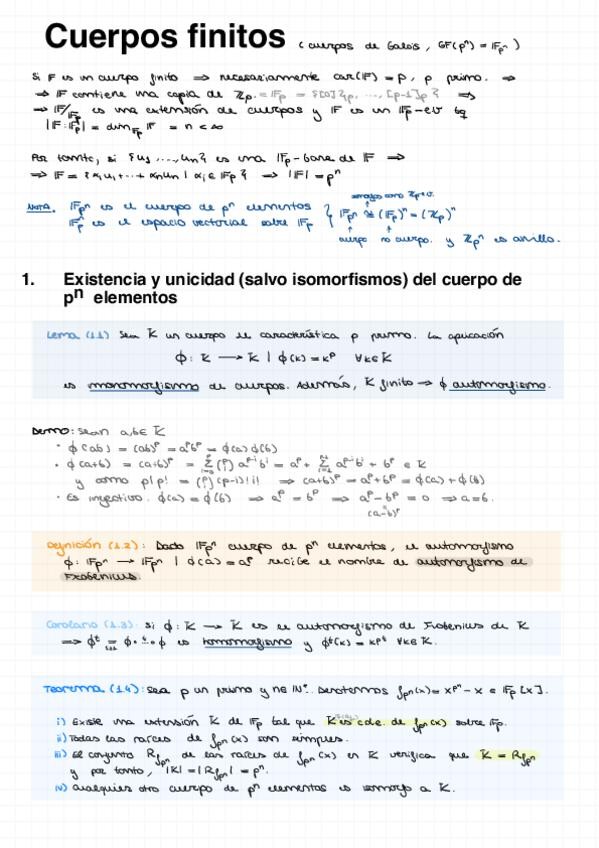 Cuerpos finitos (cuerpos de Galois, GF(pⁿ) = 𝔽pⁿ)
Si F es un cuerpo finito ⟹ necesariamente car(F) = p, p primo. ⟹
⟹ F contiene una copia de ℤp = 𝔽p = {[0]p, ..., [p-1]p} ⟹
⟹ F/𝔽p es una extensión de cuerpos y F es un 𝔽p-ev tq
|F:𝔽p| = dim𝔽p F = n < ∞
Por tanto, si {u₁, ..., un} es una 𝔽p-base de F ⟹
⟹ F = {α₁u₁ + ··· + αnun | αi ∈ 𝔽p} ⟹ |F| = pⁿ
NOTA. 𝔽pⁿ es el cuerpo de pⁿ elementos
𝔽pⁿ es el espacio vectorial sobre 𝔽p
𝔽pⁿ ≇ (𝔽p)ⁿ = (ℤp)ⁿ
cuerpo no cuerpo. y ℤpⁿ es anillo.
1. Existencia y unicidad (salvo isomorfismos) del cuerpo de
pⁿ elementos
Lema (1.1) Sea K un cuerpo de característica p primo. La aplicación
ϕ: K ⟶ K | ϕ(k) = kᵖ ∀k∈K
es monomorfismo de cuerpos. Además, K finito ⟹ ϕ automorfismo.
Demo: Sean a,b ∈ K
· ϕ(ab) = (ab)ᵖ = aᵖbᵖ = ϕ(a)ϕ(b)
· ϕ(a+b) = (a+b)ᵖ = Σ (p i) aᵖ⁻ⁱbⁱ = aᵖ + Σ aᵖ⁻ⁱbⁱ + bᵖ ∈ K
y como p|p! = (p i)(p-i)!i! ⟹ (a+b)ᵖ = aᵖ+bᵖ = ϕ(a)+ϕ(b)
· Es inyectivo. ϕ(a) = ϕ(b) ⟹ aᵖ = bᵖ ⟹ aᵖ-bᵖ = 0 ⟹ a=b.
(a-b)ᵖ
Definición (1.2): Dado 𝔽pⁿ cuerpo de pⁿ elementos, el automorfismo
ϕ: 𝔽pⁿ ⟶ 𝔽pⁿ | ϕ(a) = aᵖ recibe el nombre de automorfismo de
Frobenius.
Corolario (1.3): Si ϕ: K ⟶ K es el automorfismo de Frobenius de K
⟹ ϕᵗ = ϕ∘...∘ϕ es homomorfismo y ϕᵗ(k) = kᵖᵗ ∀k∈K.
Teorema (1.4): Sea p un primo y n∈ℕ*. Denotemos fpⁿ(x) = xᵖⁿ - x ∈ 𝔽p[x].
i) Existe una extensión K de 𝔽p tal que K es cde. de fpⁿ(x) sobre 𝔽p.
ii) Todas las raíces de fpⁿ(x) son simples.
iii) El conjunto Rfpⁿ de las raíces de fpⁿ(x) en K verifica que K = Rfpⁿ
y por tanto, |K| = |Rfpⁿ| = pⁿ.
iv) Cualquier otro cuerpo de pⁿ elementos es isomorfo a K.